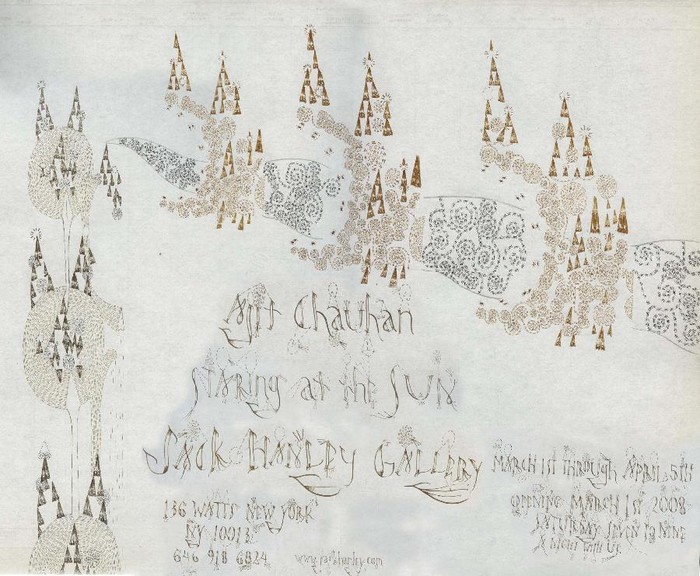 Ajit Chauhan
Staring at the Sun
Jack Hanley Gallery
136 Watts New York
NY 10013
646 918 6824
www.jackhanley.com
March 1st through April 5th
Opening March 1st 2008
Saturday seven to nine